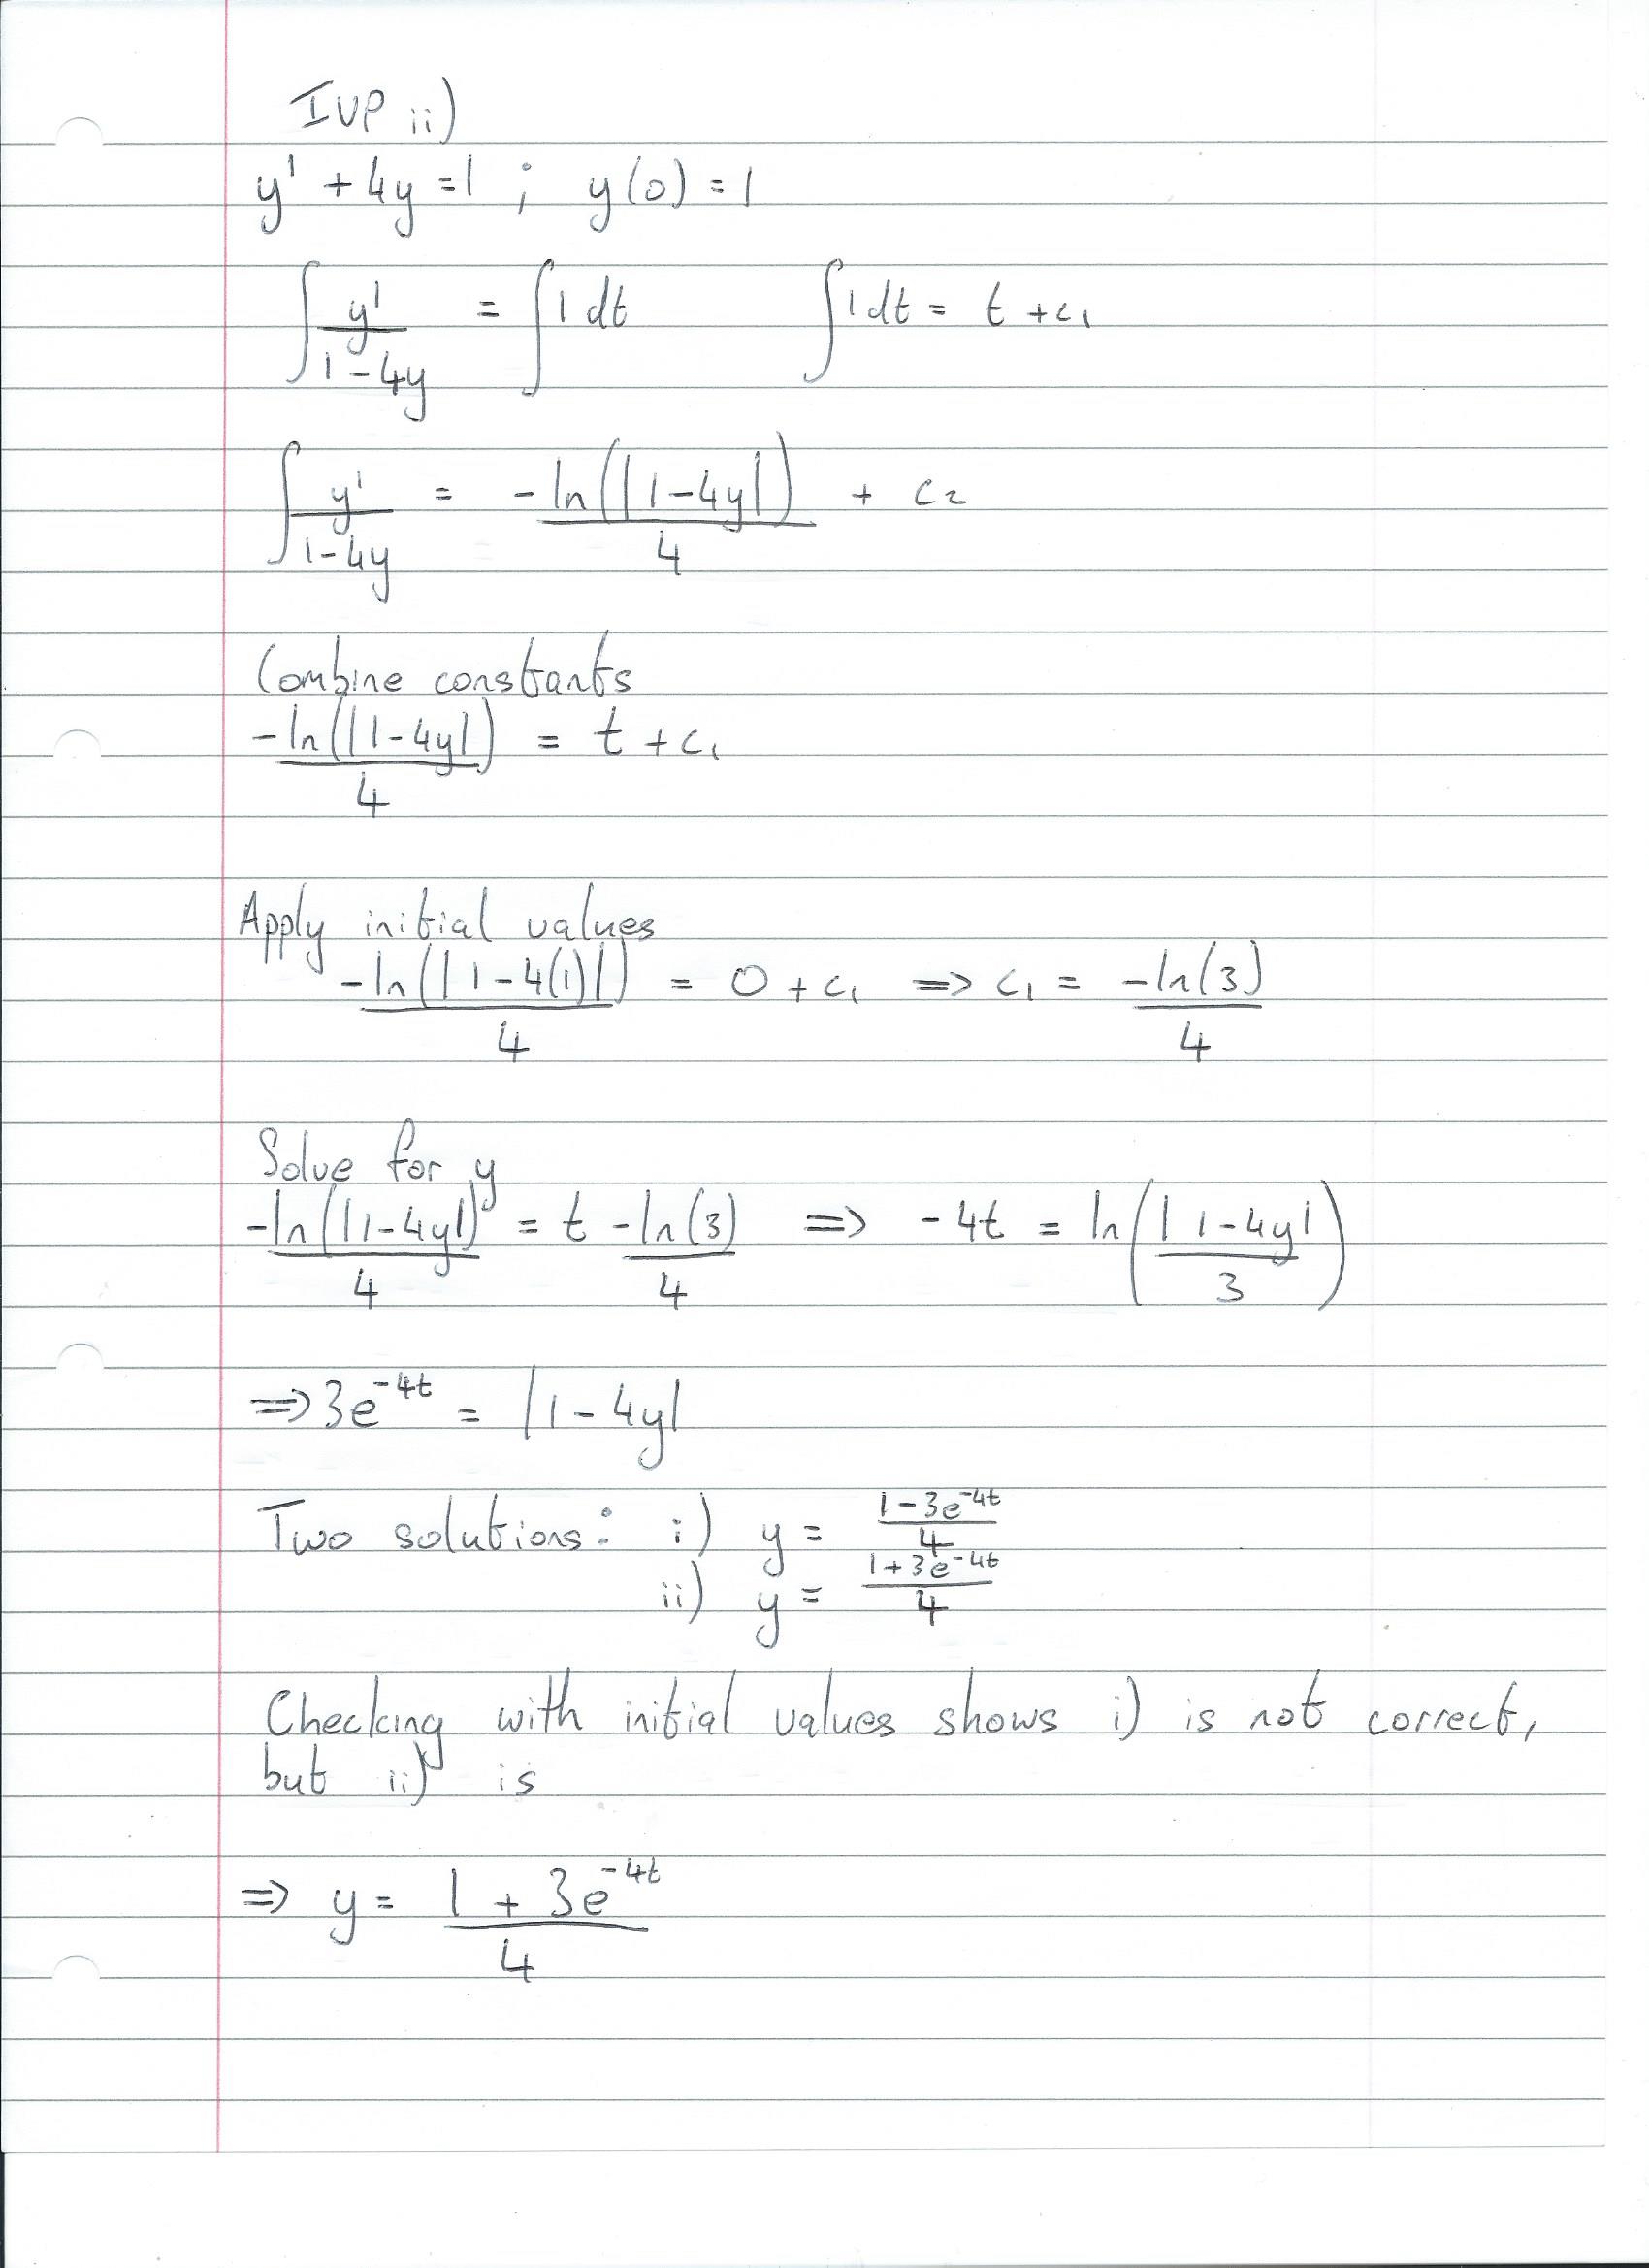 IVP ii)
y' + 4y = 1 ; y(0) = 1
∫ y'/(1-4y) = ∫ 1 dt    ∫ 1 dt = t + c₁
∫ y'/(1-4y) = -ln(|1-4y|)/4 + c₂
Combine constants
-ln(|1-4y|)/4 = t + c₁
Apply initial values
-ln(|1-4(1)|)/4 = 0 + c₁ => c₁ = -ln(3)/4
Solve for y
-ln(|1-4y|)/4 = t - ln(3)/4 => -4t = ln(|1-4y|/3)
=> 3e^(-4t) = |1-4y|
Two solutions: i) y = (1-3e^(-4t))/4
ii) y = (1+3e^(-4t))/4
Checking with initial values shows i) is not correct,
but ii) is
=> y = (1 + 3e^(-4t))/4